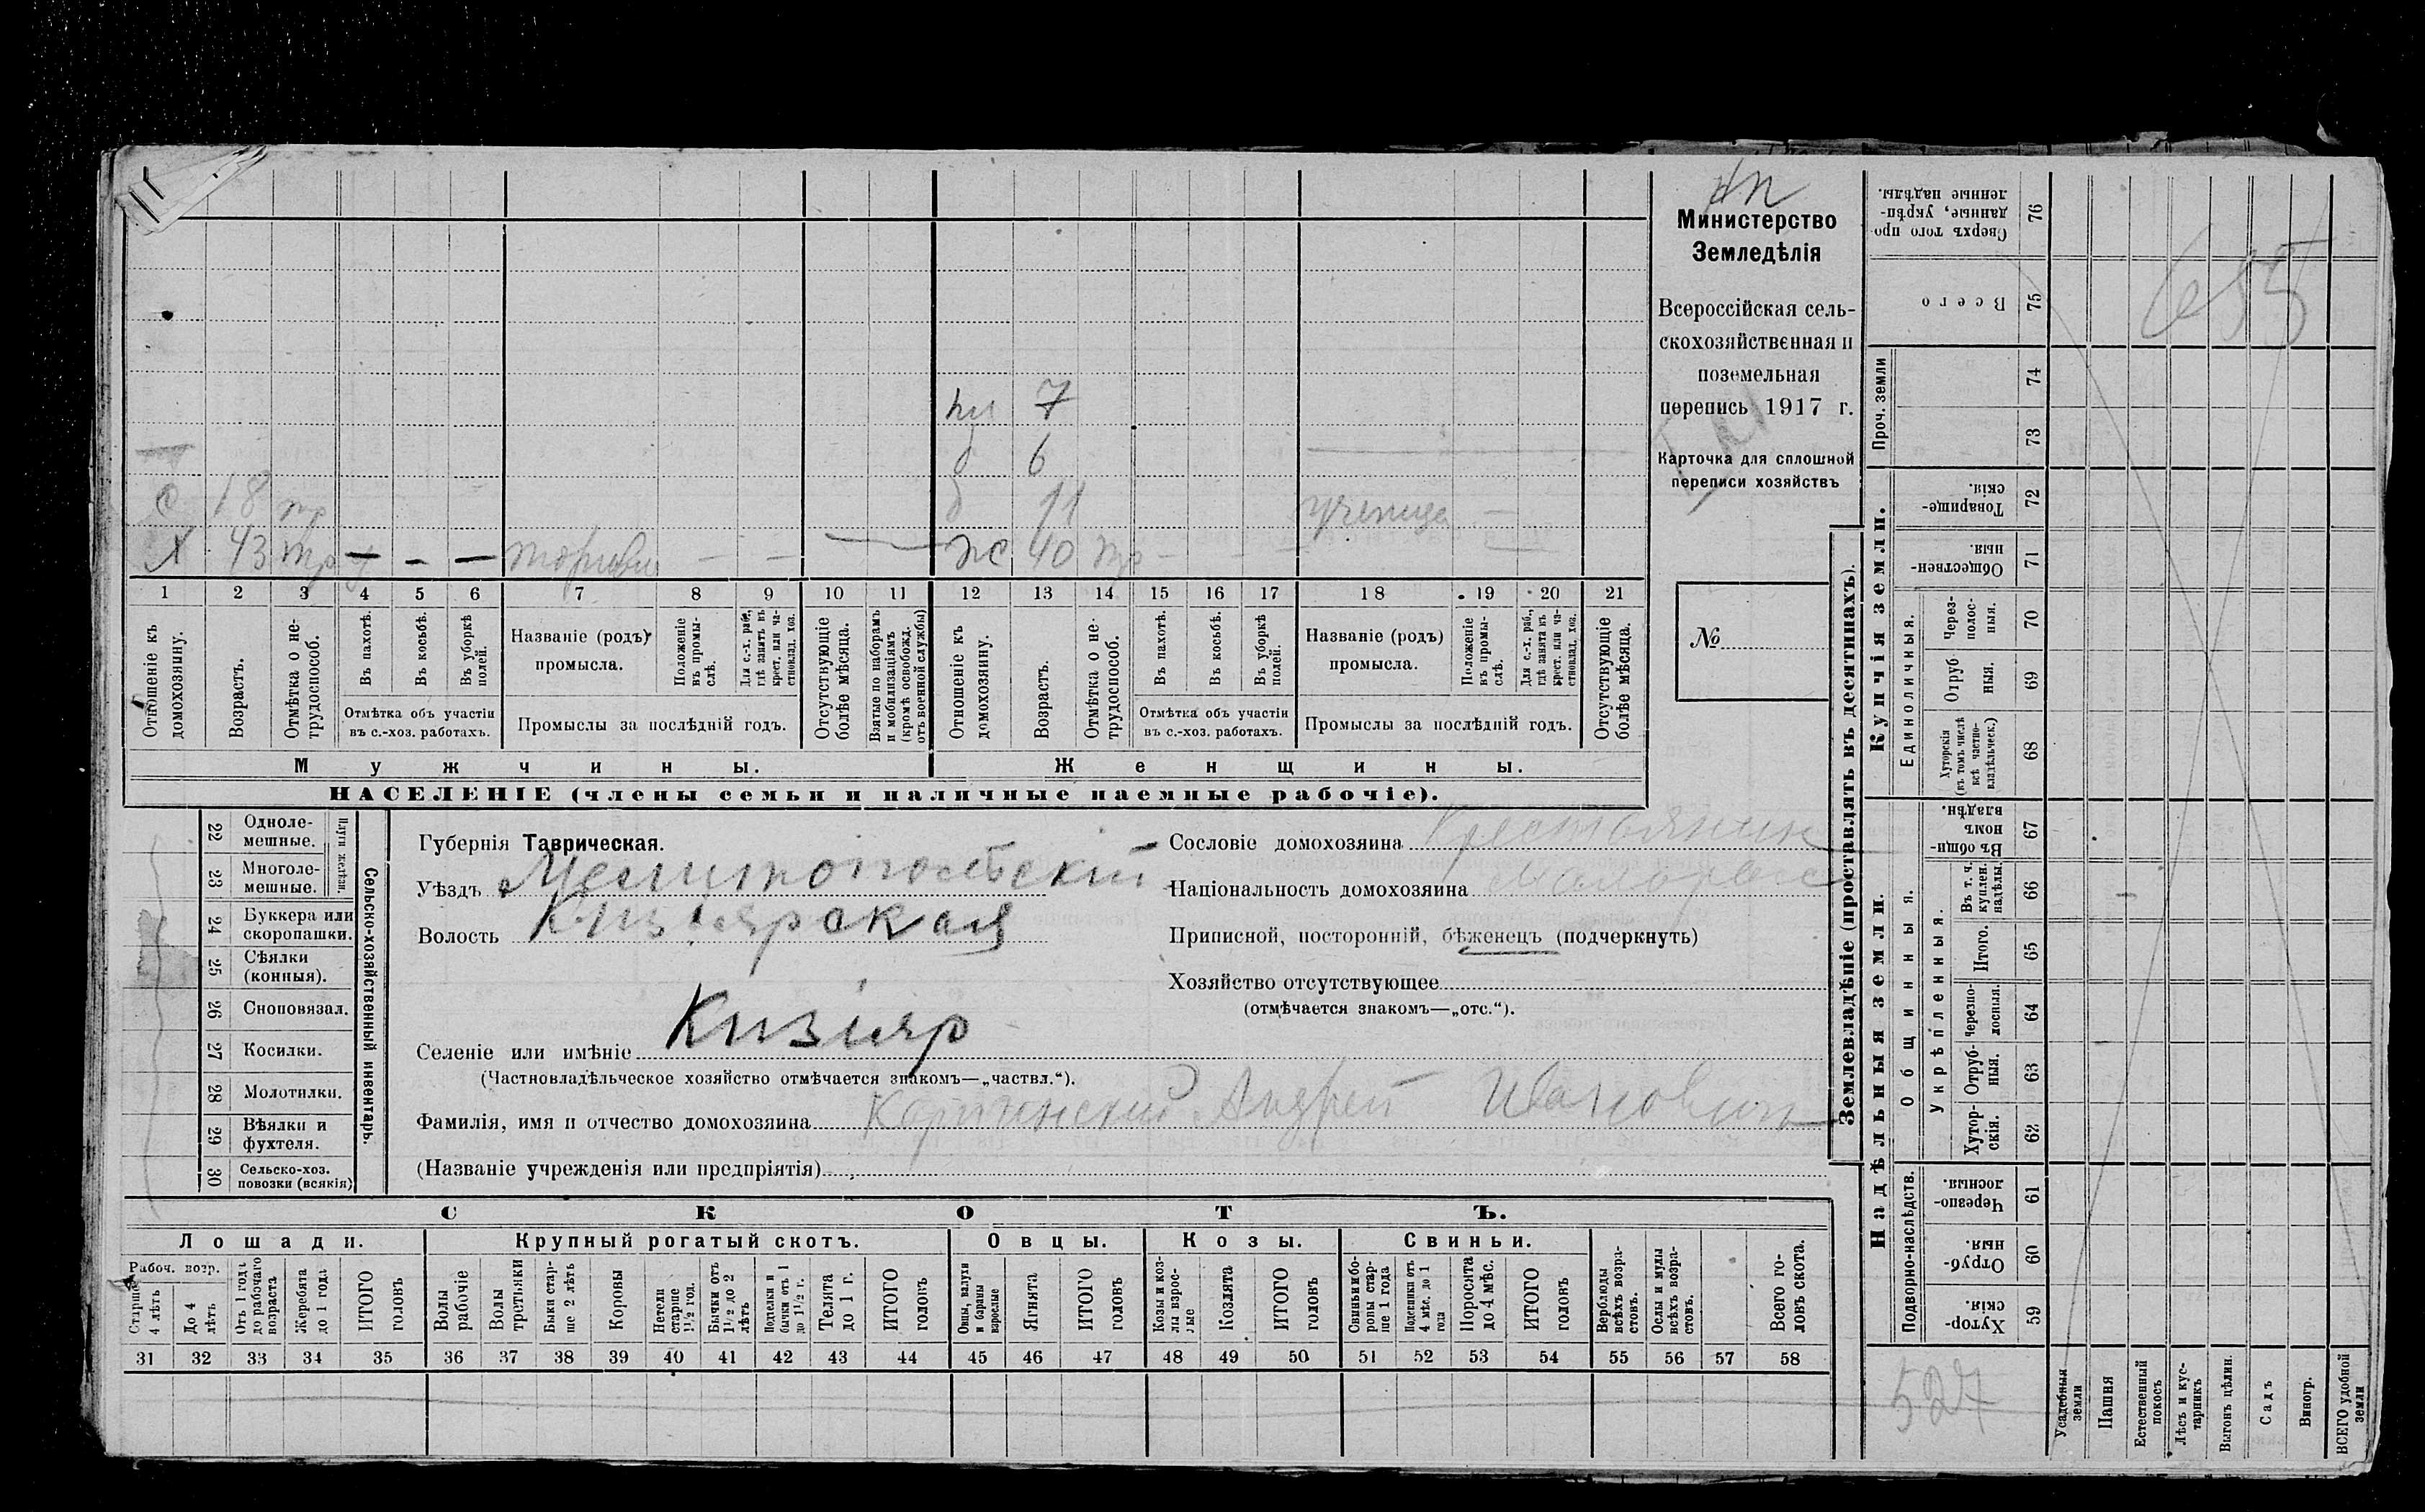 Министерство
Земледѣлія
Всероссійская сель-
скохозяйственная и
поземельная
перепись 1917 г.
Карточка для сплошной
переписи хозяйствъ
№
ч 7
д 6
с 18 тр д 11 ученица —
Х 43 тр — — — торговл — — — ж 40 тр —
1 2 3 4 5 6 7 8 9 10 11 12 13 14 15 16 17 18 19 20 21
Отношеніе къ домохозяину.
Возрастъ.
Отмѣтка о не-трудоспособ.
Въ пахотѣ.
Въ косьбѣ.
Въ уборкѣ полей.
Отмѣтка объ участіи
въ с.-хоз. работахъ.
Названіе (родъ)
промысла.
Положеніе въ промы-слѣ.
Для с.-х. раб., гдѣ занятъ въ крест. или ча-стновлад. хоз.
Промыслы за послѣдній годъ.
Отсутствующіе болѣе мѣсяца.
Взятые по наборамъ и мобилизаціямъ (кромѣ освобожд. отъ военной службы)
Отношеніе къ домохозяину.
Возрастъ.
Отмѣтка о не-трудоспособ.
Въ пахотѣ.
Въ косьбѣ.
Въ уборкѣ полей.
Отмѣтка объ участіи
въ с.-хоз. работахъ.
Названіе (родъ)
промысла.
Положеніе въ промы-слѣ.
Для с.-х. раб., гдѣ занята въ крест. или ча-стновлад. хоз.
Промыслы за послѣдній годъ.
Отсутствующіе болѣе мѣсяца.
Мужчины. Женщины.
НАСЕЛЕНІЕ (члены семьи и наличные наемные рабочіе).
22 Одноле-мешные.
23 Многоле-мешные.
Плуги желѣзн.
24 Буккера или скоропашки.
25 Сѣялки (конныя).
26 Сноповязал.
27 Косилки.
28 Молотилки.
29 Вѣялки и фухтеля.
30 Сельско-хоз. повозки (всякія)
Сельско-хозяйственный инвентарь.
Губернія Таврическая.
Уѣздъ Мелитопольскій
Волость Кизіярская
Селеніе или имѣніе Кизіяр
(Частновладѣльческое хозяйство отмѣчается знакомъ—„частвл.“).
Фамилія, имя и отчество домохозяина Андрей Иванович
(Названіе учрежденія или предпріятія)
Сословіе домохозяина Крестьянин
Національность домохозяина Малорос
Приписной, посторонній, бѣженецъ (подчеркнуть)
Хозяйство отсутствующее
(отмѣчается знакомъ—„отс.“).
СКОТЪ.
Лошади. Крупный рогатый скотъ. Овцы. Козы. Свиньи.
Рабоч. возр.
Старше 4 лѣтъ
До 4 лѣтъ
Отъ 1 года до рабочаго возраста
Жеребята до 1 года
ИТОГО головъ
Волы рабочіе
Волы третьяки
Быки стар-ше 2 лѣтъ
Коровы
Нетели старше 1½ год.
Бычки отъ 1½ до 2 лѣтъ
Подтелки и бычки отъ 1 до 1½ г.
Телята до 1 г.
ИТОГО головъ
Овцы, валухи и бараны взрослые
Ягнята
ИТОГО головъ
Козы и коз-лы взрос-лые
Козлята
ИТОГО головъ
Свиньи и бо-ровы стар-ше 1 года
Подсвинки отъ 4 мѣс. до 1 года
Поросята до 4 мѣс.
ИТОГО головъ
Верблюды всѣхъ возра-стовъ.
Ослы и мулы всѣхъ возра-стовъ.
Всего го-ловъ скота.
31 32 33 34 35 36 37 38 39 40 41 42 43 44 45 46 47 48 49 50 51 52 53 54 55 56 57 58
Землевладѣніе (проставлять въ десятинахъ).
Сверхъ того про-данные, укрѣп-ленные надѣлы. 76
655
Всего 75
Проч. земли
74
73
Купчія земли.
Товарище-скія. 72
Обществен-ныя. 71
Единоличныя.
Через-полос-ныя. 70
Отруб-ныя. 69
Хуторскія (въ томъ числѣ всѣ частно-владѣльческ.) 68
Надѣльныя земли.
Общинныя.
Въ общи-номъ владѣн. 67
Въ т. ч. куплен. надѣлы. 66
Укрѣпленныя.
Итого. 65
Черезпо-лосныя. 64
Отруб-ныя. 63
Хутор-скія. 62
Подворно-наслѣдств.
Черезпо-лосныя. 61
Отруб-ныя. 60
Хутор-скія. 59
527
Усадебныя земли
Пашня
Естественный покосъ
Лѣсъ и кус-тарникъ
Выгонъ цѣлин.
Садъ
Виногр.
ВСЕГО удобной земли